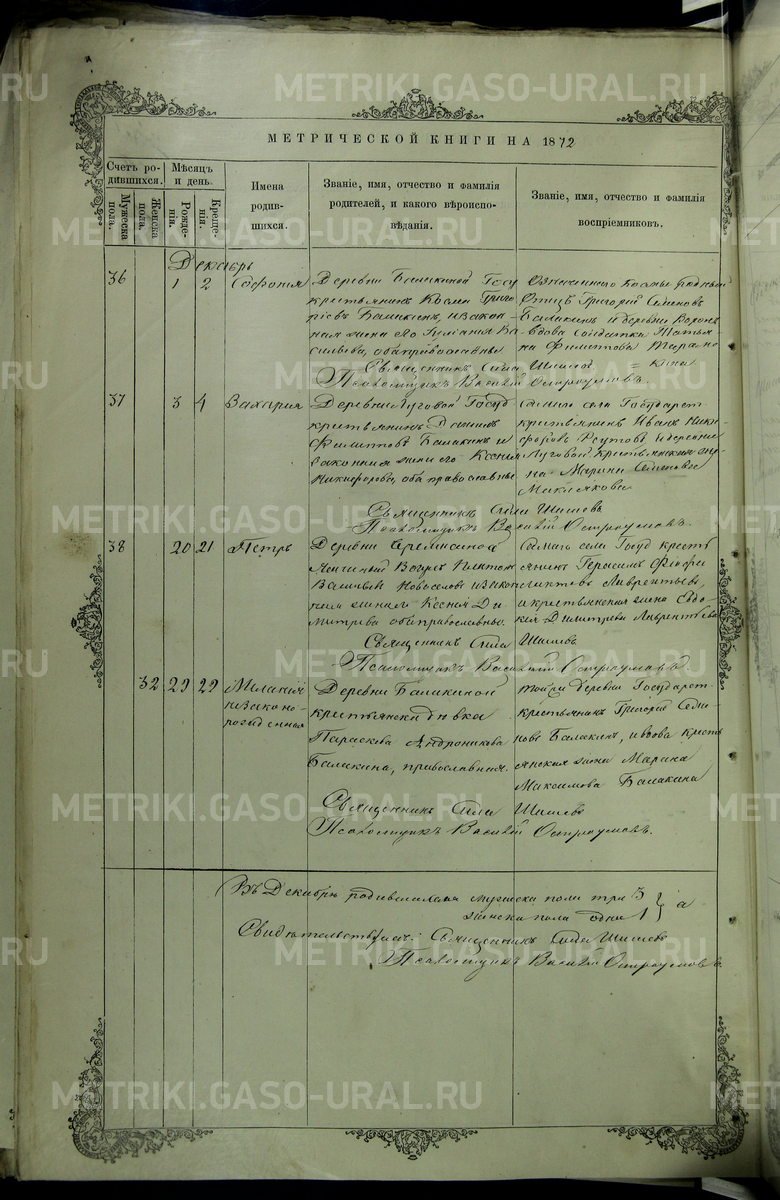 МЕТРИЧЕСКОЙ КНИГИ НА 1872
Счетъ родившихся.
Мужеска пола.
Женска пола.
Мѣсяцъ и день.
Рожденія.
Крещенія.
Имена родившихся.
Званіе, имя, отчество и фамилія родителей, и какого вѣроисповѣданія.
Званіе, имя, отчество и фамилія воспріемниковъ.
Декабрь
36
1
2
Софонія
Деревни Балакиной Госу
крестьянинъ Косма Григо
ріевъ Балакинъ, и закон
ная жена его Іуліанія Ва
сильева, оба православные
Отецъ Григорій Семеновъ
Балакинъ и деревни
вдова солдатка Татья
на Филиппова
Священникъ Сила Шишевъ
Псаломщикъ Василій Остроумовъ.
37
3
4
Захарія
Деревни Луговой Госуд
крестьянинъ Даніилъ
Филипповъ Балакинъ и
законная жена его Ксенія
Никифорова, оба православные
села Государст
крестьянинъ Иванъ Ники
форовъ Реутовъ и деревни
Луговой крестьянская
Марина Семенова
Священникъ Сила Шишевъ
Псаломщикъ Василій Остроумовъ.
38
20
21
Петръ
Деревни
Васильевъ Новоселовъ и закон
Ксенія Ди
митрева оба православные
села Госуд кресть
янинъ Герасимъ
Лаврентьевъ,
и крестьянская жена Евдо
кія Димитрева Лаврентьева
Священникъ Сила Шишевъ
Псаломщикъ Василій Остроумовъ.
32
29
29
Меланія
незаконно-
рожденная
Деревни Балакиной
крестьянская дѣвка
Параскева Андроникова
Балакина, православная.
той же деревни Государст
крестьянинъ Григорій Семе
новъ Балакинъ, и вдова кресть
янская жена Марина
Максимова Балакина
Священникъ Сила Шишевъ
Псаломщикъ Василій Остроумовъ.
Въ Декабрѣ родившихся мужеска пола три 3
женска пола одна 1
Свидѣтельствуютъ: Священникъ Сила Шишевъ
Псаломщикъ Василій Остроумовъ
METRIKI.GASO-URAL.RU